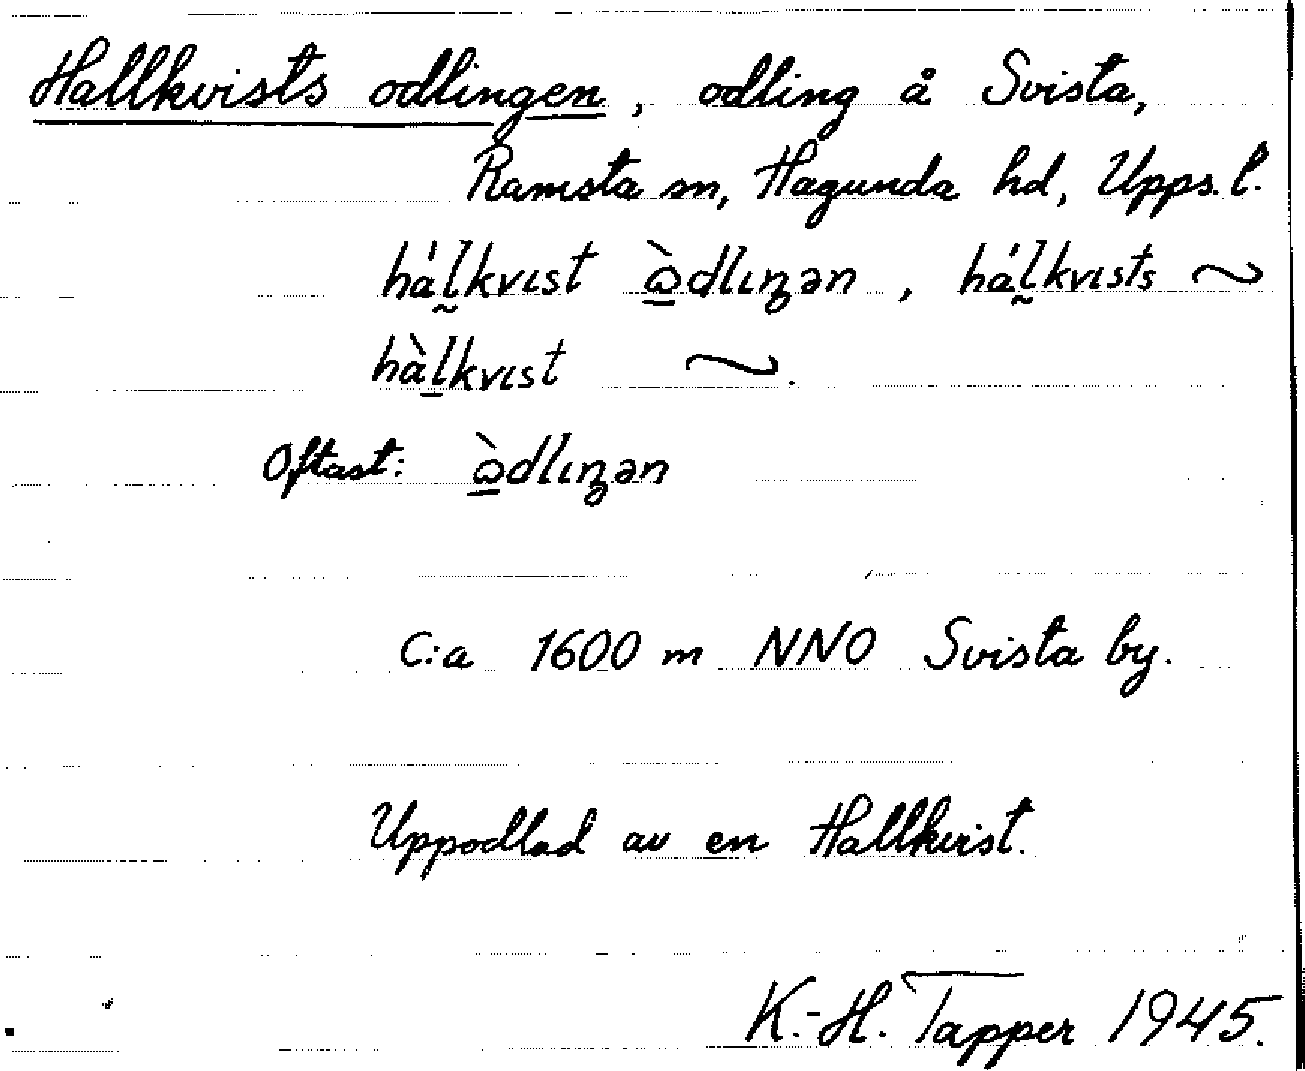 Hallkvists odlingen, odling å Svista,
Ramsta sn, Hagunda hd, Upps. l.
há́l̰kvıst ɷ̠̀dlıŋən, há́l̰kvısts ~
hàl̠kvıst ~.
Oftast: ɷ̠̀dlıŋən
C:a 1600 m NNO Svista by.
Uppodlad av en Hallkvist.
K.-H. Tapper 1945.